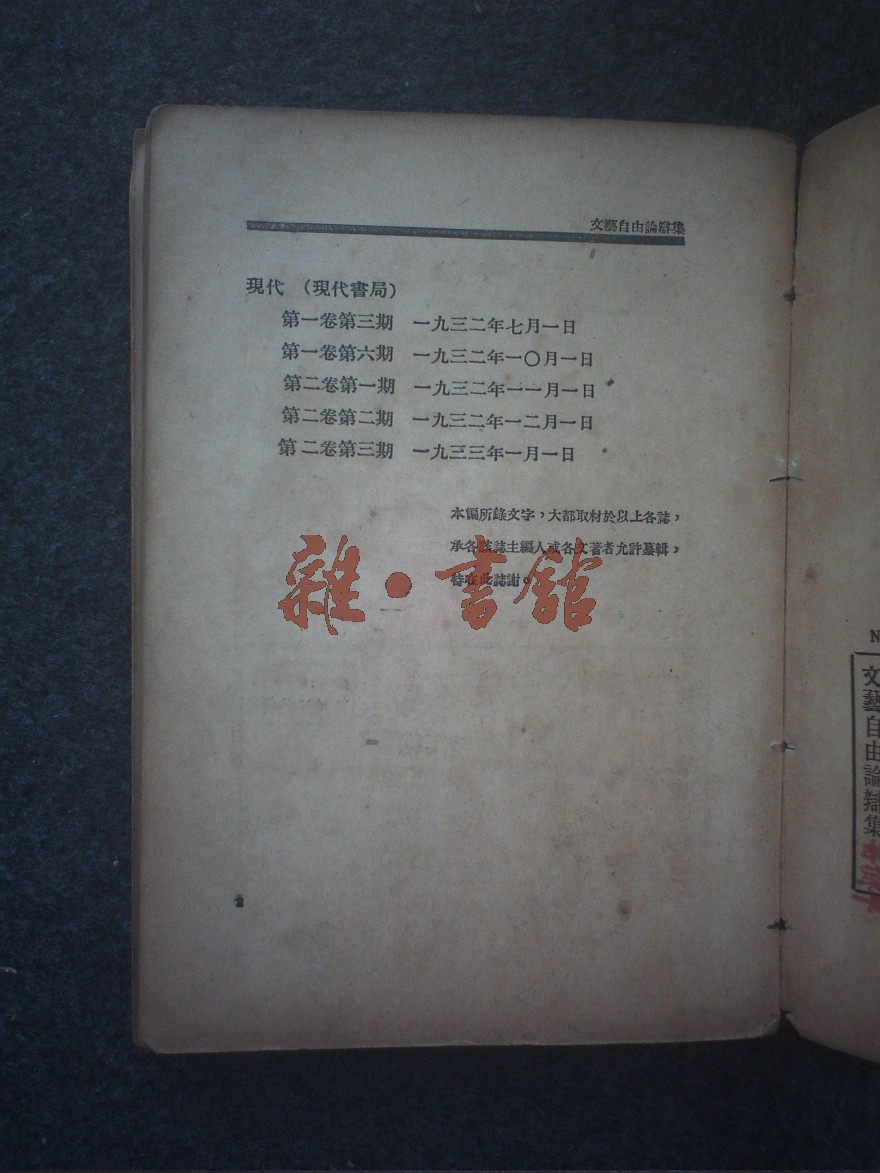 文藝自由論辯集
現代 （現代書局）
第一卷第三期 一九三二年七月一日
第一卷第六期 一九三二年一〇月一日
第二卷第一期 一九三二年一一月一日
第二卷第二期 一九三二年一二月一日
第二卷第三期 一九三三年一月一日
本編所錄文字，大都取材於以上各誌，
承各該誌主編人或各文著者允許纂輯，
特在此誌謝。
雜·書館
2
N
文藝自由論辯集